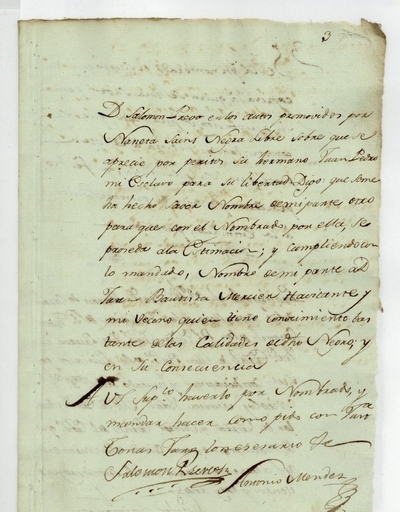 3
Dn Salomon Prevo en los autos promovidos por
Naneta Sains Negra Libre sobre que se
aprecie por peritos su hermano Juan Pedro
mi Esclavo para su libertad Digo: que seme
ha hecho saver Nombre de mi parte otro
para que con el Nombrado, por ella, se
proceda ala Estimacion; y cumpliendo con
lo mandado, Nombro de mi parte a Dn
Juan Bautista Mercier Havitante y
mi Vecino quien tiene conocimiento bas
tante de las Calidades de dho Negro; y
en su Consecuencia
A VS suplco haverlo por Nombrado, y
mandar hacer como pido con Justa
Costas Juro lo necesario &a
Salomon
Antonio Mendez